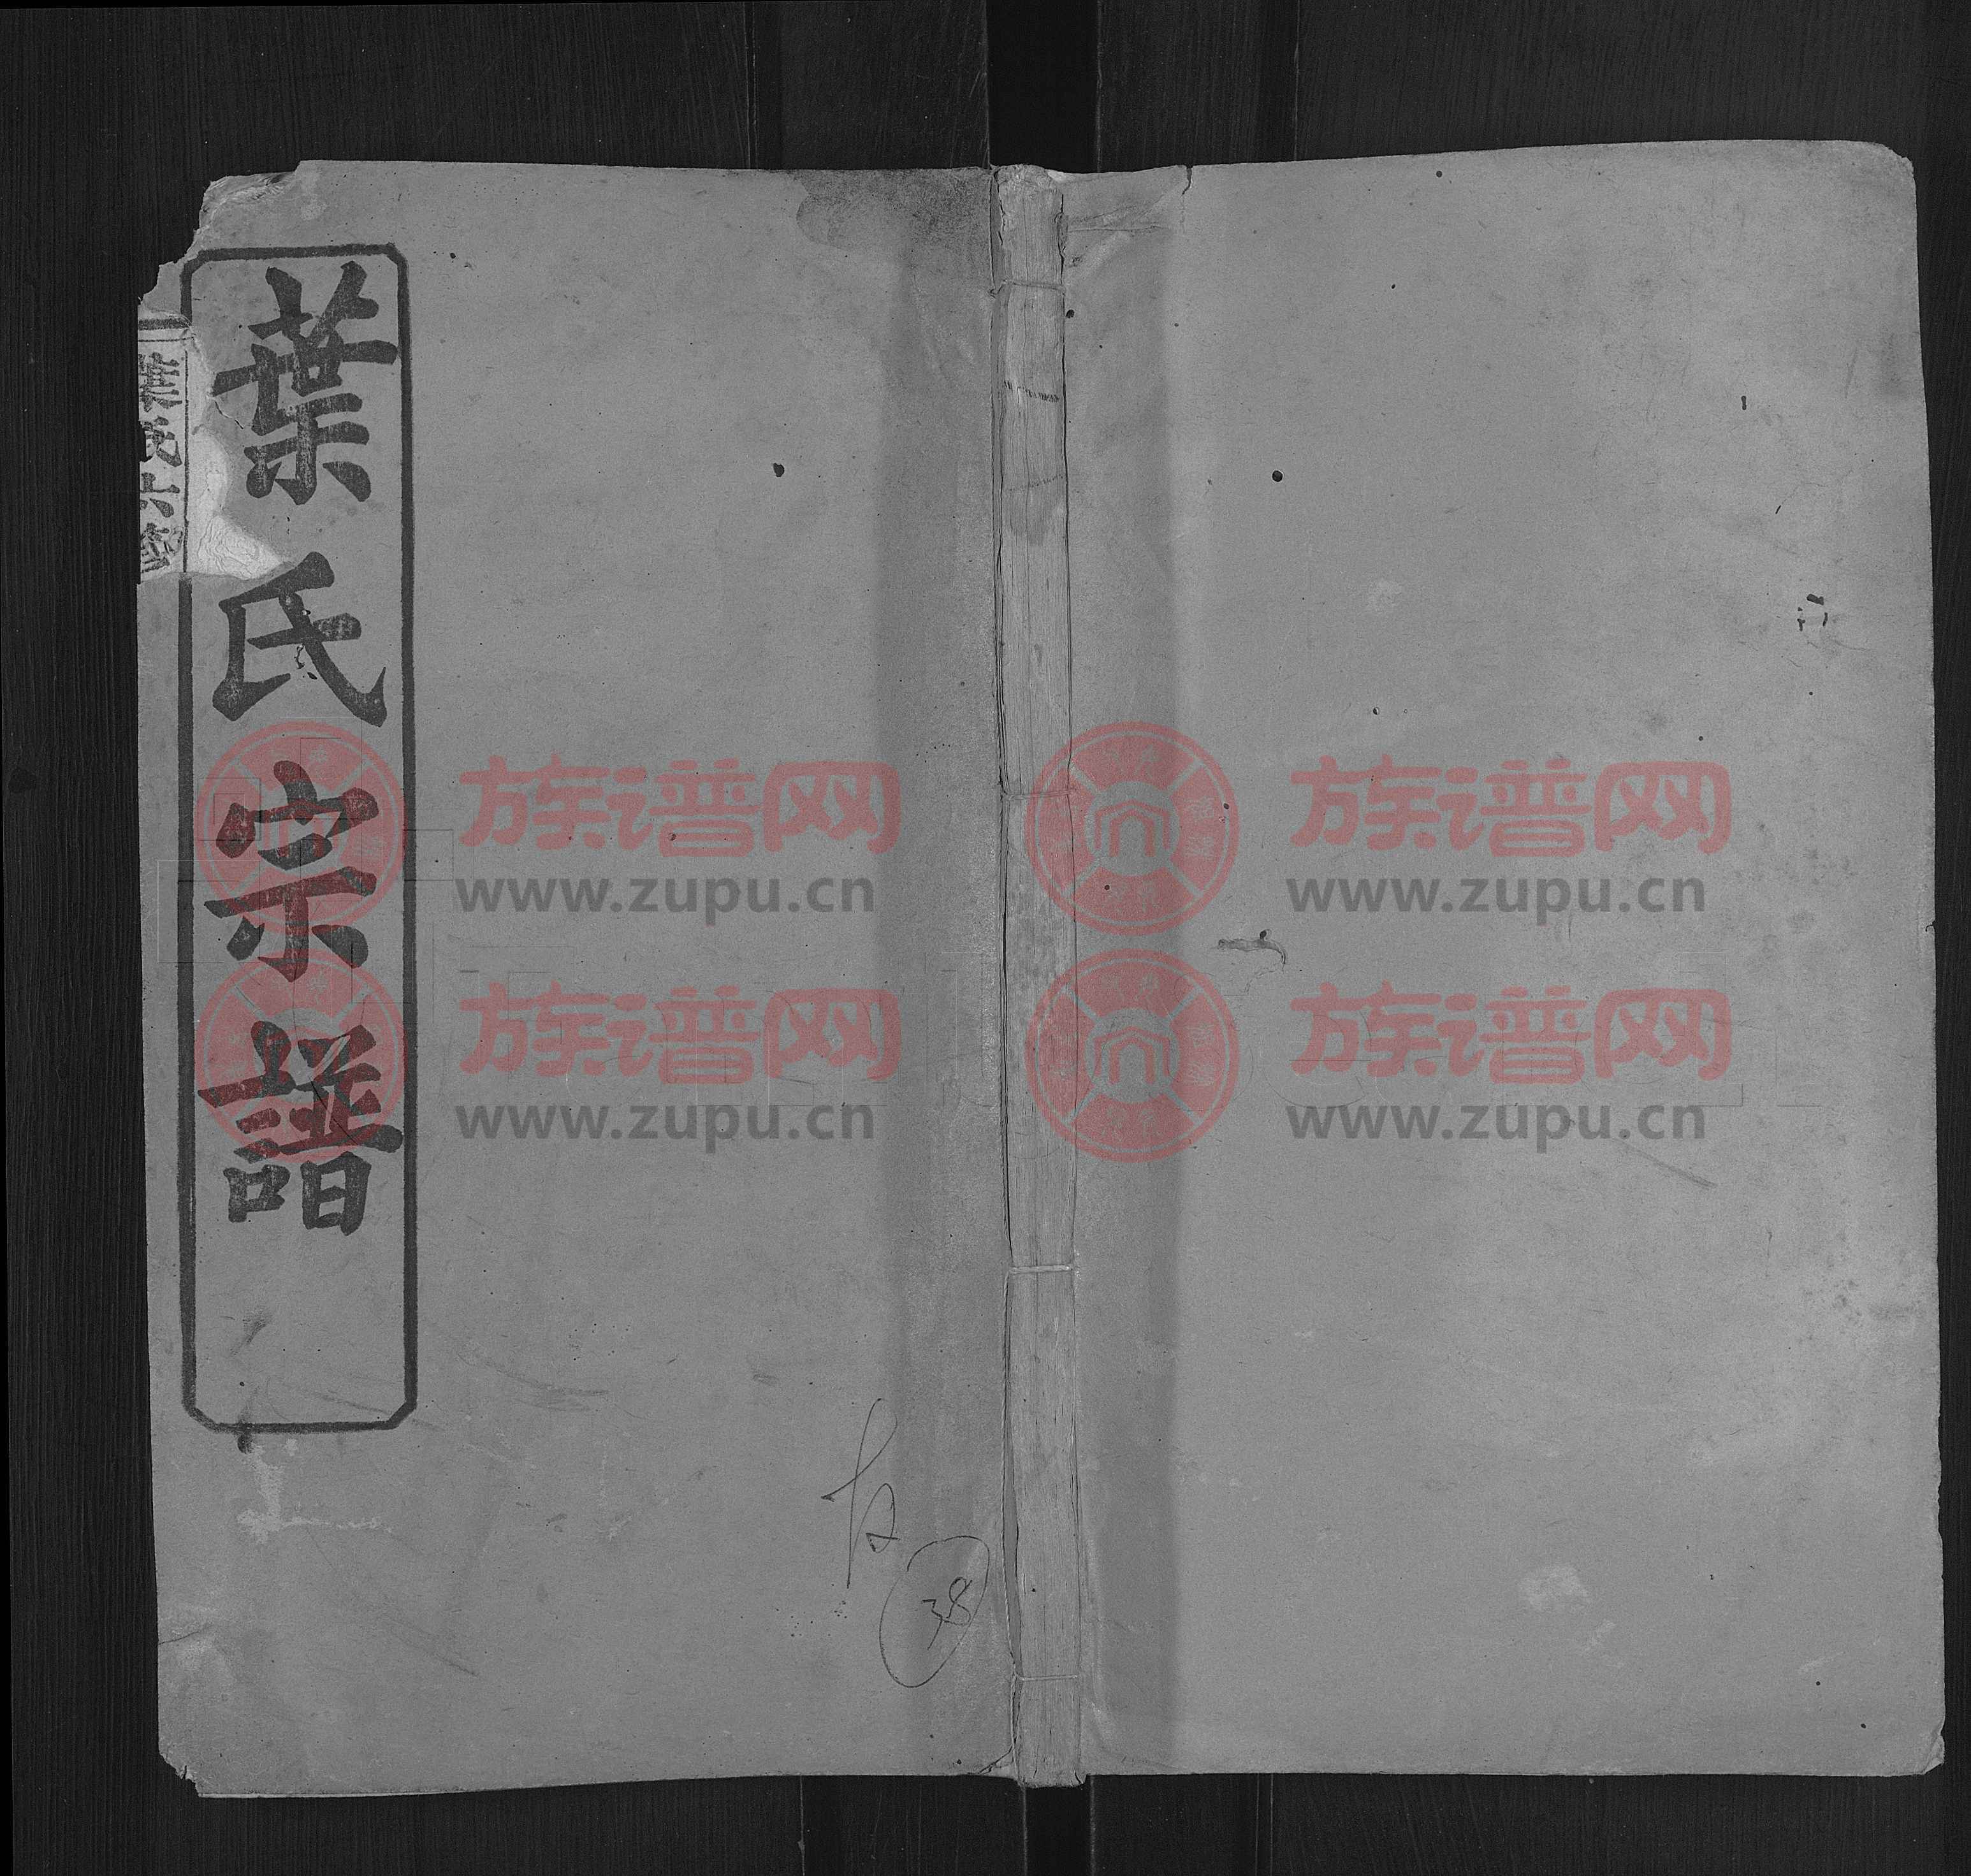 葉氏宗譜
葉氏六修
38
族谱网
www.zupu.cn
族谱网
www.zupu.cn
族谱网
www.zupu.cn
族谱网
www.zupu.cn